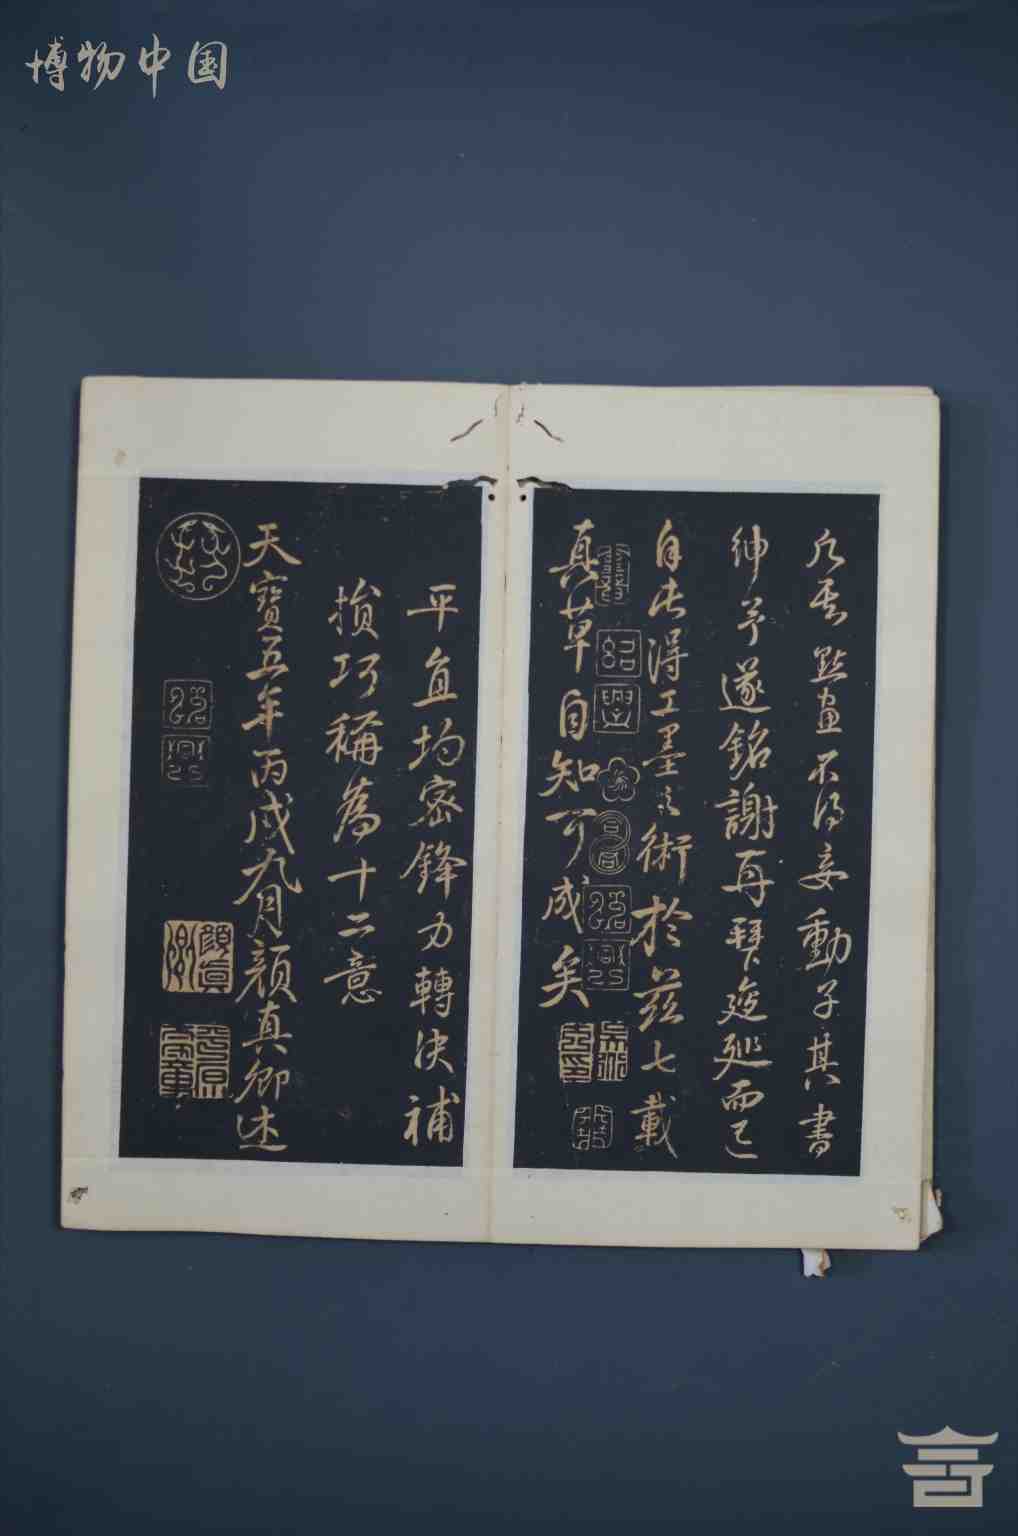 博物中国
點畫不得妄動子其書
紳予遂銘謝再拜逡巡而已
自此得工墨之術於茲七載
真草自知可成矣
紹興
平直均密鋒力轉決補
損巧稱為十二意
天寶五年丙戌九月顏真卿述
顏真卿